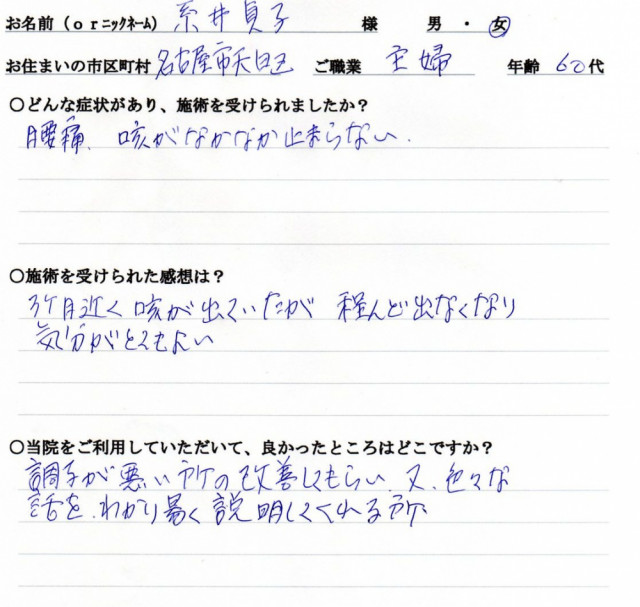 お名前(orニックネーム) 糸井貞子 様 男・女
お住まいの市区町村 名古屋市天白区 ご職業 主婦 年齢 60代
○どんな症状があり、施術を受けられましたか?
腰痛、咳がなかなか止まらない.
○施術を受けられた感想は?
3ケ月近く咳が出ていたが 程んど出なくなり
気分がとてもよい
○当院をご利用していただいて、良かったところはどこですか?
調子が悪い所の改善してもらい、又、色々な
話を、わかり易く説明してくれる所